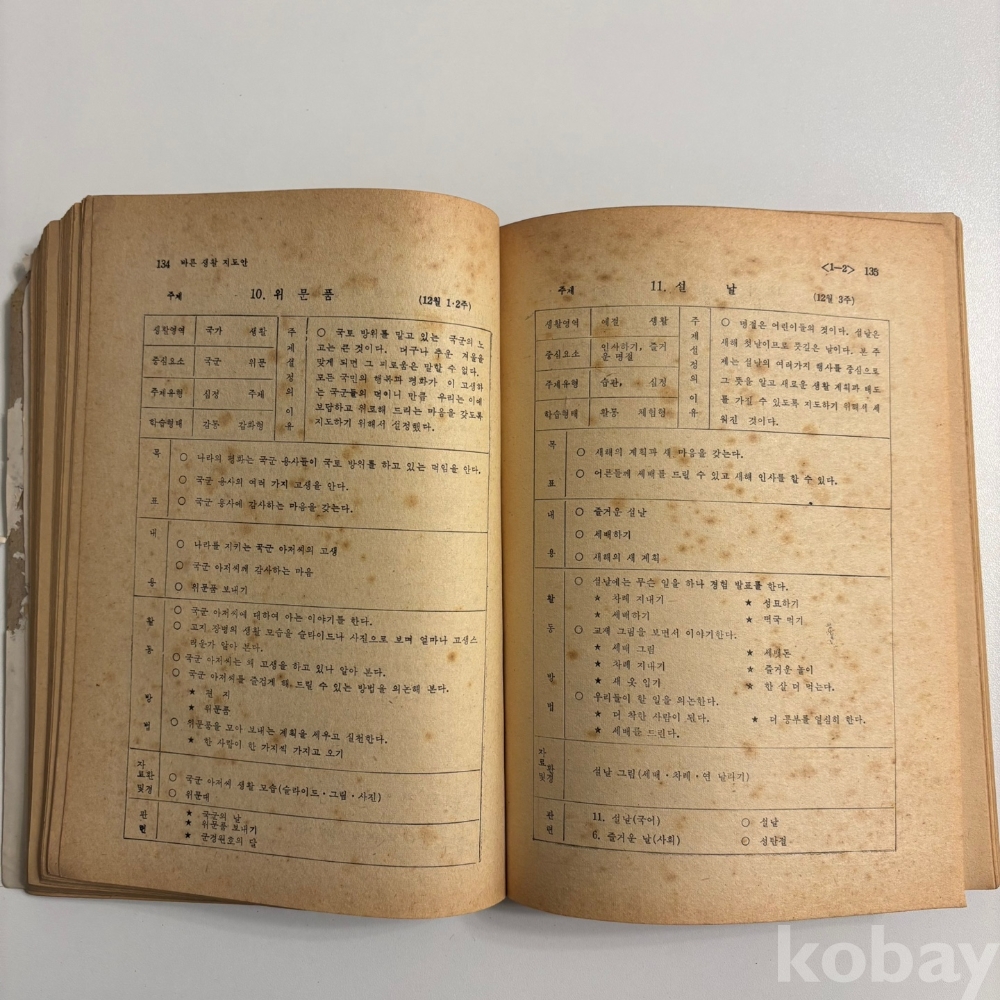 134 바른 생활 지도안
주제 10. 위 문 품 (12월 1·2주)
생활영역 국가 생활
중심요소 국군 위문
주제유형 심정 주제
학습형태 감동 감화형
주제설정의 이유
○ 국토 방위를 맡고 있는 국군의 노
고는 큰 것이다. 더구나 추운 겨울을
맞게 되면 그 괴로움은 말할 수 없다.
모든 국민의 행복과 평화가 이 고생하
는 국군들의 덕이니 만큼 우리는 이에
보답하고 위로해 드리는 마음을 갖도록
지도하기 위해서 설정했다.
목 표
○ 나라의 평화는 국군 용사들이 국토 방위를 하고 있는 덕임을 안다.
○ 국군 용사의 여러 가지 고생을 안다.
○ 국군 용사에 감사하는 마음을 갖는다.
내 용
○ 나라를 지키는 국군 아저씨의 고생
○ 국군 아저씨께 감사하는 마음
○ 위문품 보내기
활 동 방 법
○ 국군 아저씨에 대하여 아는 이야기를 한다.
○ 고지 장병의 생활 모습을 슬라이드나 사진으로 보며 얼마나 고생스
러운가 알아 본다.
○ 국군 아저씨는 왜 고생을 하고 있나 알아 본다.
○ 국군 아저씨를 즐겁게 해 드릴 수 있는 방법을 의논해 본다.
★ 편 지
★ 위문품
○ 위문품을 모아 보내는 계획을 세우고 실천한다.
★ 한 사람이 한 가지씩 가지고 오기
자료 및 환경
○ 국군 아저씨 생활 모습(슬라이드·그림·사진)
○ 위문대
관 련
★ 국군의 날
★ 위문품 보내기
★ 군경원호의 달
<1-2> 135
주제 11. 설 날 (12월 3주)
생활영역 예절 생활
중심요소 인사하기, 즐거
운 명절
주제유형 습관, 심정
학습형태 활동 체험형
주제설정의 이유
○ 명절은 어린이들의 것이다. 설날은
새해 첫날이므로 뜻깊은 날이다. 본 주
제는 설날의 여러가지 행사를 중심으로
그 뜻을 알고 새로운 생활 계획과 태도
를 가질 수 있도록 지도하기 위해서 세
워진 것이다.
목 표
○ 새해의 계획과 새 마음을 갖는다.
○ 어른들께 세배를 드릴 수 있고 새해 인사를 할 수 있다.
내 용
○ 즐거운 설날
○ 세배하기
○ 새해의 새 계획
활 동 방 법
○ 설날에는 무슨 일을 하나 경험 발표를 한다.
★ 차례 지내기 ★ 성묘하기
★ 세배하기 ★ 떡국 먹기
○ 교재 그림을 보면서 이야기한다.
★ 세배 그림 ★ 세뱃돈
★ 차례 지내기 ★ 즐거운 놀이
★ 새 옷 입기 ★ 한 살 더 먹는다.
○ 우리들이 할 일을 의논한다.
★ 더 착한 사람이 된다. ★ 더 공부를 열심히 한다.
★ 세배를 드린다.
자료 및 환경
설날 그림(세배·차례·연 날리기)
관 련
11. 설날(국어) ○ 설날
6. 즐거운 날(사회) ○ 성탄절
kobay